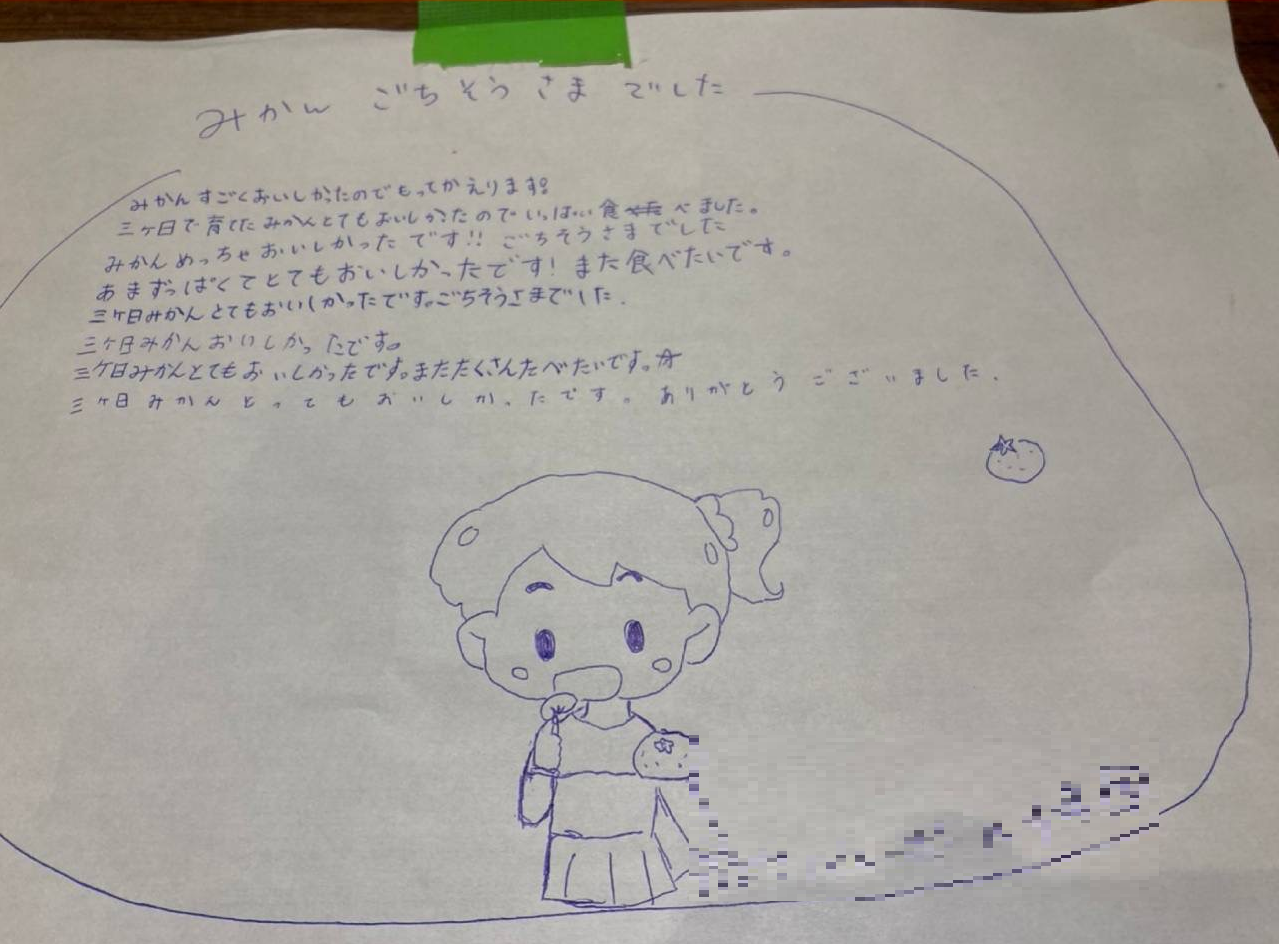 みかん ごちそうさまでした
みかんすごくおいしかったのでもってかえります。
三ヶ日で育てたみかんとてもおいしかったのでいっぱい食べました。
みかんめっちゃおいしかったです!! ごちそうさまでした
あまずっぱくてとてもおいしかったです!また食べたいです。
三ケ日みかんとてもおいしかったです。ごちそうさまでした.
三ケ日みかんおいしかったです。
三ケ日みかんとてもおいしかったです。またたくさんたべたいです。☆
三ヶ日みかんとってもおいしかったです。ありがとうございました.